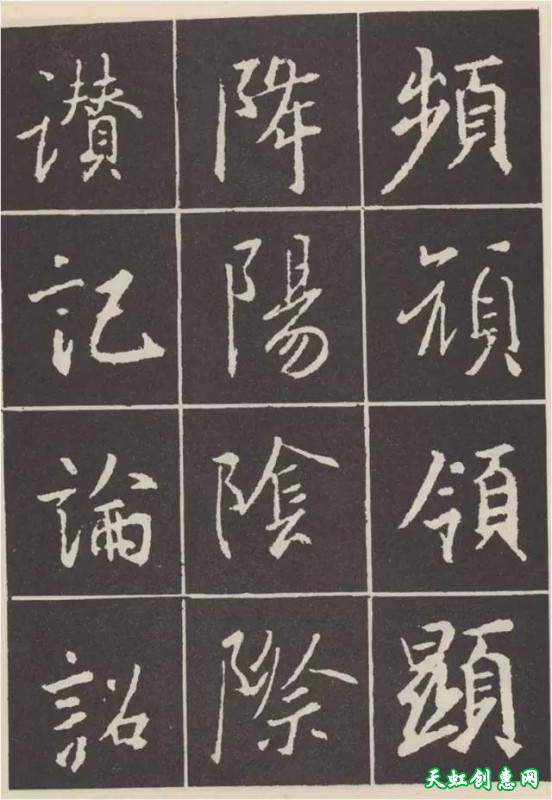 頻頑領顯
降陽陰際
讚記論詔
天虹创惠网